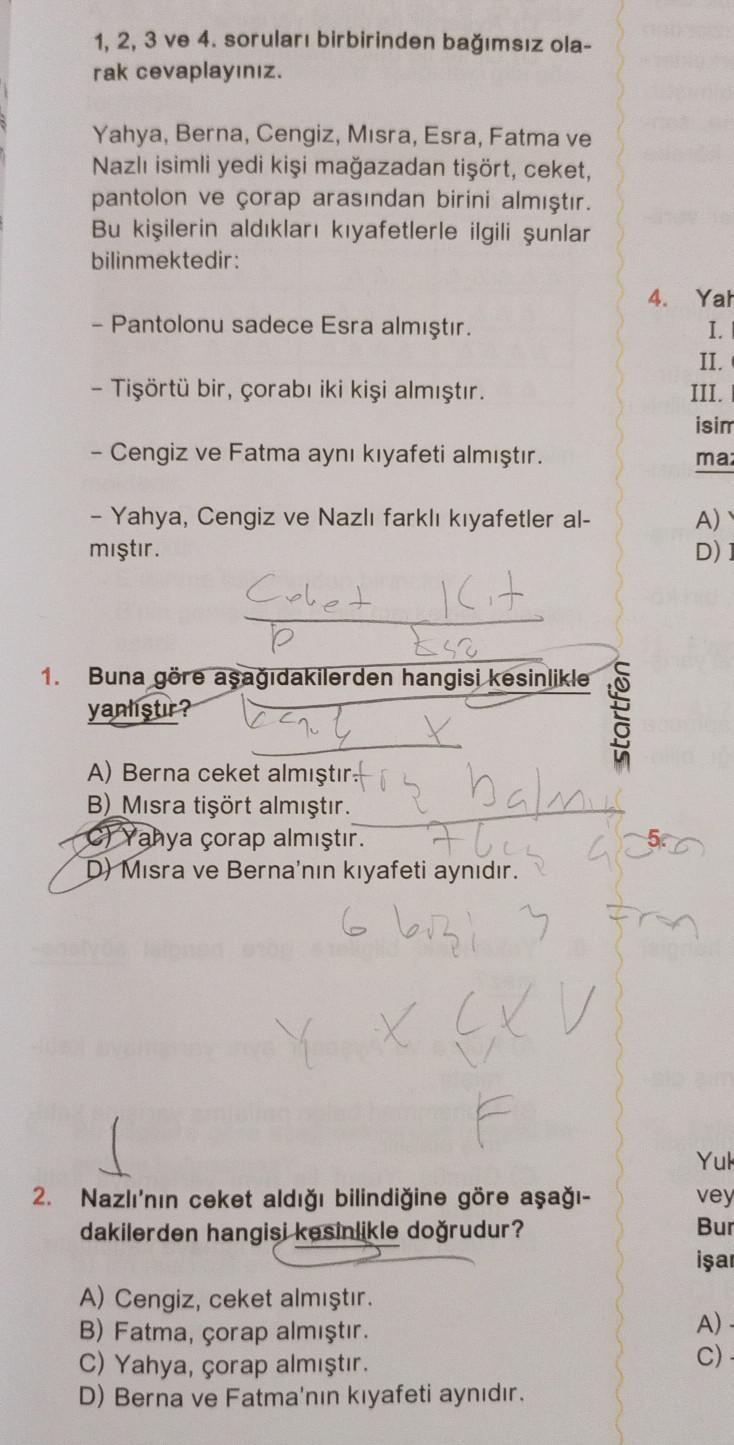 1, 2, 3 ve 4. soruları birbirinden bağımsız ola-
rak cevaplayınız.
Yahya, Berna, Cengiz, Mısra, Esra, Fatma ve
Nazlı isimli yedi kişi mağazadan tişört, ceket,
pantolon ve çorap arasından birini almıştır.
Bu kişilerin aldıkları kıyafetlerle ilgili şunlar
bilinmektedir:
- Pantolonu sadece Esra almıştır.
- Tişörtü bir, çorabı iki kişi almıştır.
- Cengiz ve Fatma aynı kıyafeti almıştır.
- Yahya, Cengiz ve Nazlı farklı kıyafetler al-
mıştır.
1. Buna göre aşağıdakilerden hangisi kesinlikle
yanlıştır?
A) Berna ceket almıştır.
B) Mısra tişört almıştır.
C) Yahya çorap almıştır.
D) Mısra ve Berna'nın kıyafeti aynıdır.
startfen
2. Nazlı'nın ceket aldığı bilindiğine göre aşağı-
dakilerden hangisi kesinlikle doğrudur?
A) Cengiz, ceket almıştır.
B) Fatma, çorap almıştır.
C) Yahya, çorap almıştır.
D) Berna ve Fatma'nın kıyafeti aynıdır.
4. Yah
I.
II.
III.
isim
A)
D)
5.
Yuk
vey
Bur
işar
A) -
C) -